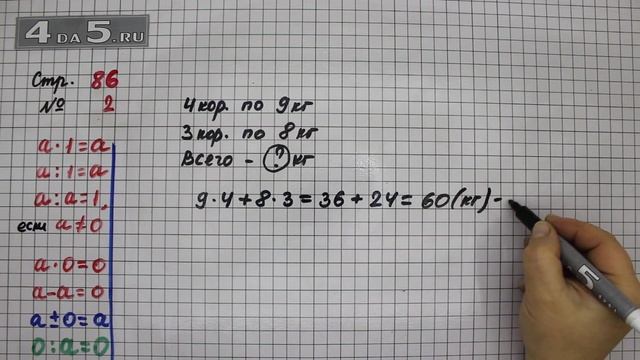 4DA5.RU
Стр. 86
№ 2
a · 1 = a
a : 1 = a
a : a = 1,
если a ≠ 0
a · 0 = 0
a - a = 0
a ± 0 = a
0 : a = 0
4 кор. по 9 кг
3 кор. по 8 кг
Всего - ? кг
9 · 4 + 8 · 3 = 36 + 24 = 60 (кг) -
5